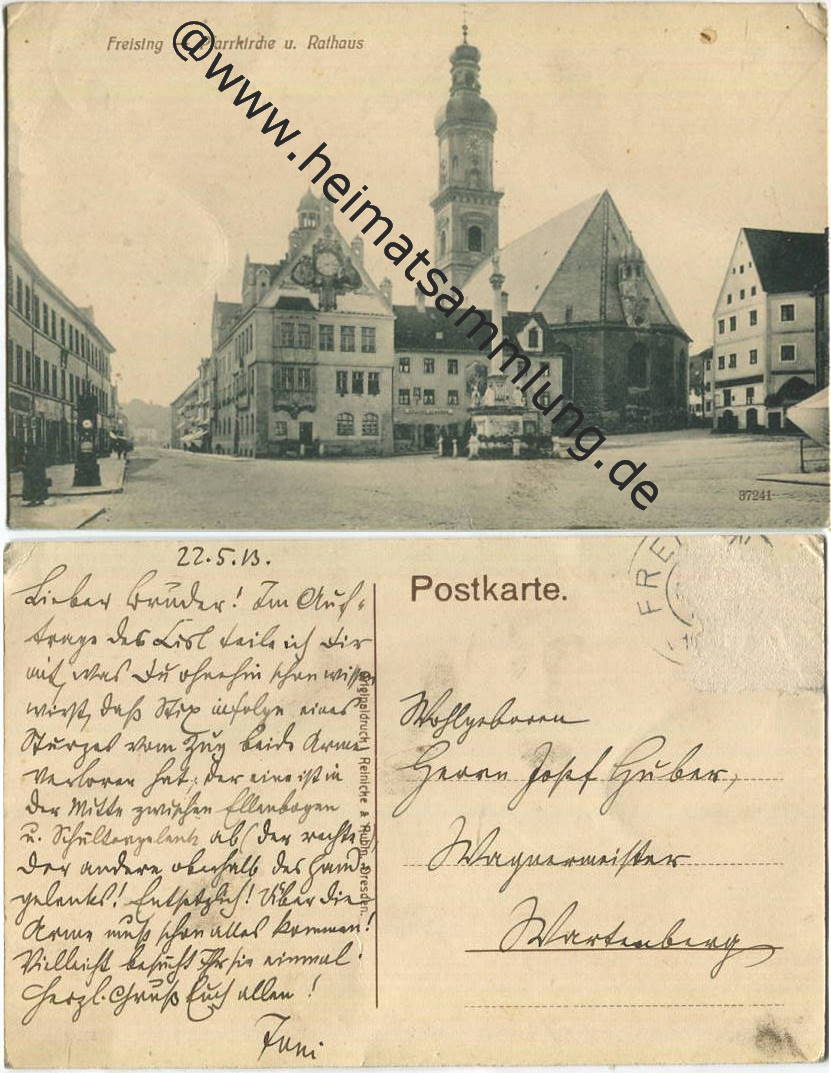 Freising - Pfarrkirche u. Rathaus
@www.heimatsammlung.de
37241
22.5.13.
Lieber Bruder! Im Auf-
trage des Lisl teile ich Dir
mit, was Du ohnehin schon wissen
wirst, daß Stix infolge eines
Sturzes vom Zug beide Arme
verloren hat; der eine ist in
der Mitte zwischen Ellenbogen
u. Schultergelenk ab (der rechte),
der andere oberhalb des Hand-
gelenks! Entsetzlich! Über die
Arme muß schon alles kommen!
Vielleicht besucht Ihr sie einmal.
Herzl. Gruß Euch allen!
Toni
Originaldruck Reinicke & Rubin, Dresden.
Postkarte.
FREI
Wohlgeboren
Herrn Josef Huber,
Wagnermeister
Wartenberg